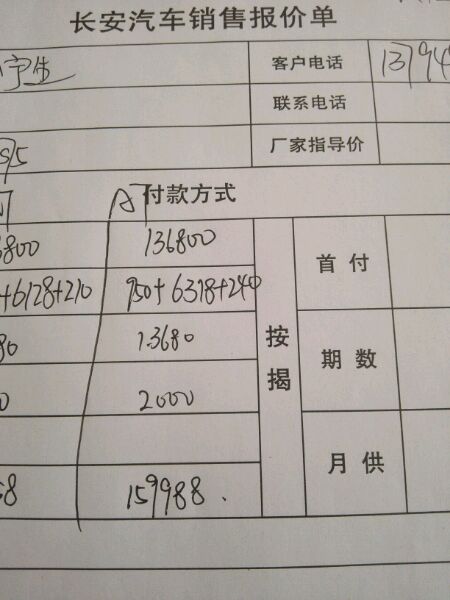 长安汽车销售报价单
客户电话 13794
联系电话
S15 厂家指导价
AT 付款方式
6800 136800 首付
+6128+210 950+6378+240
80 13680 按揭 期数
0 2000
月供
58 159988.